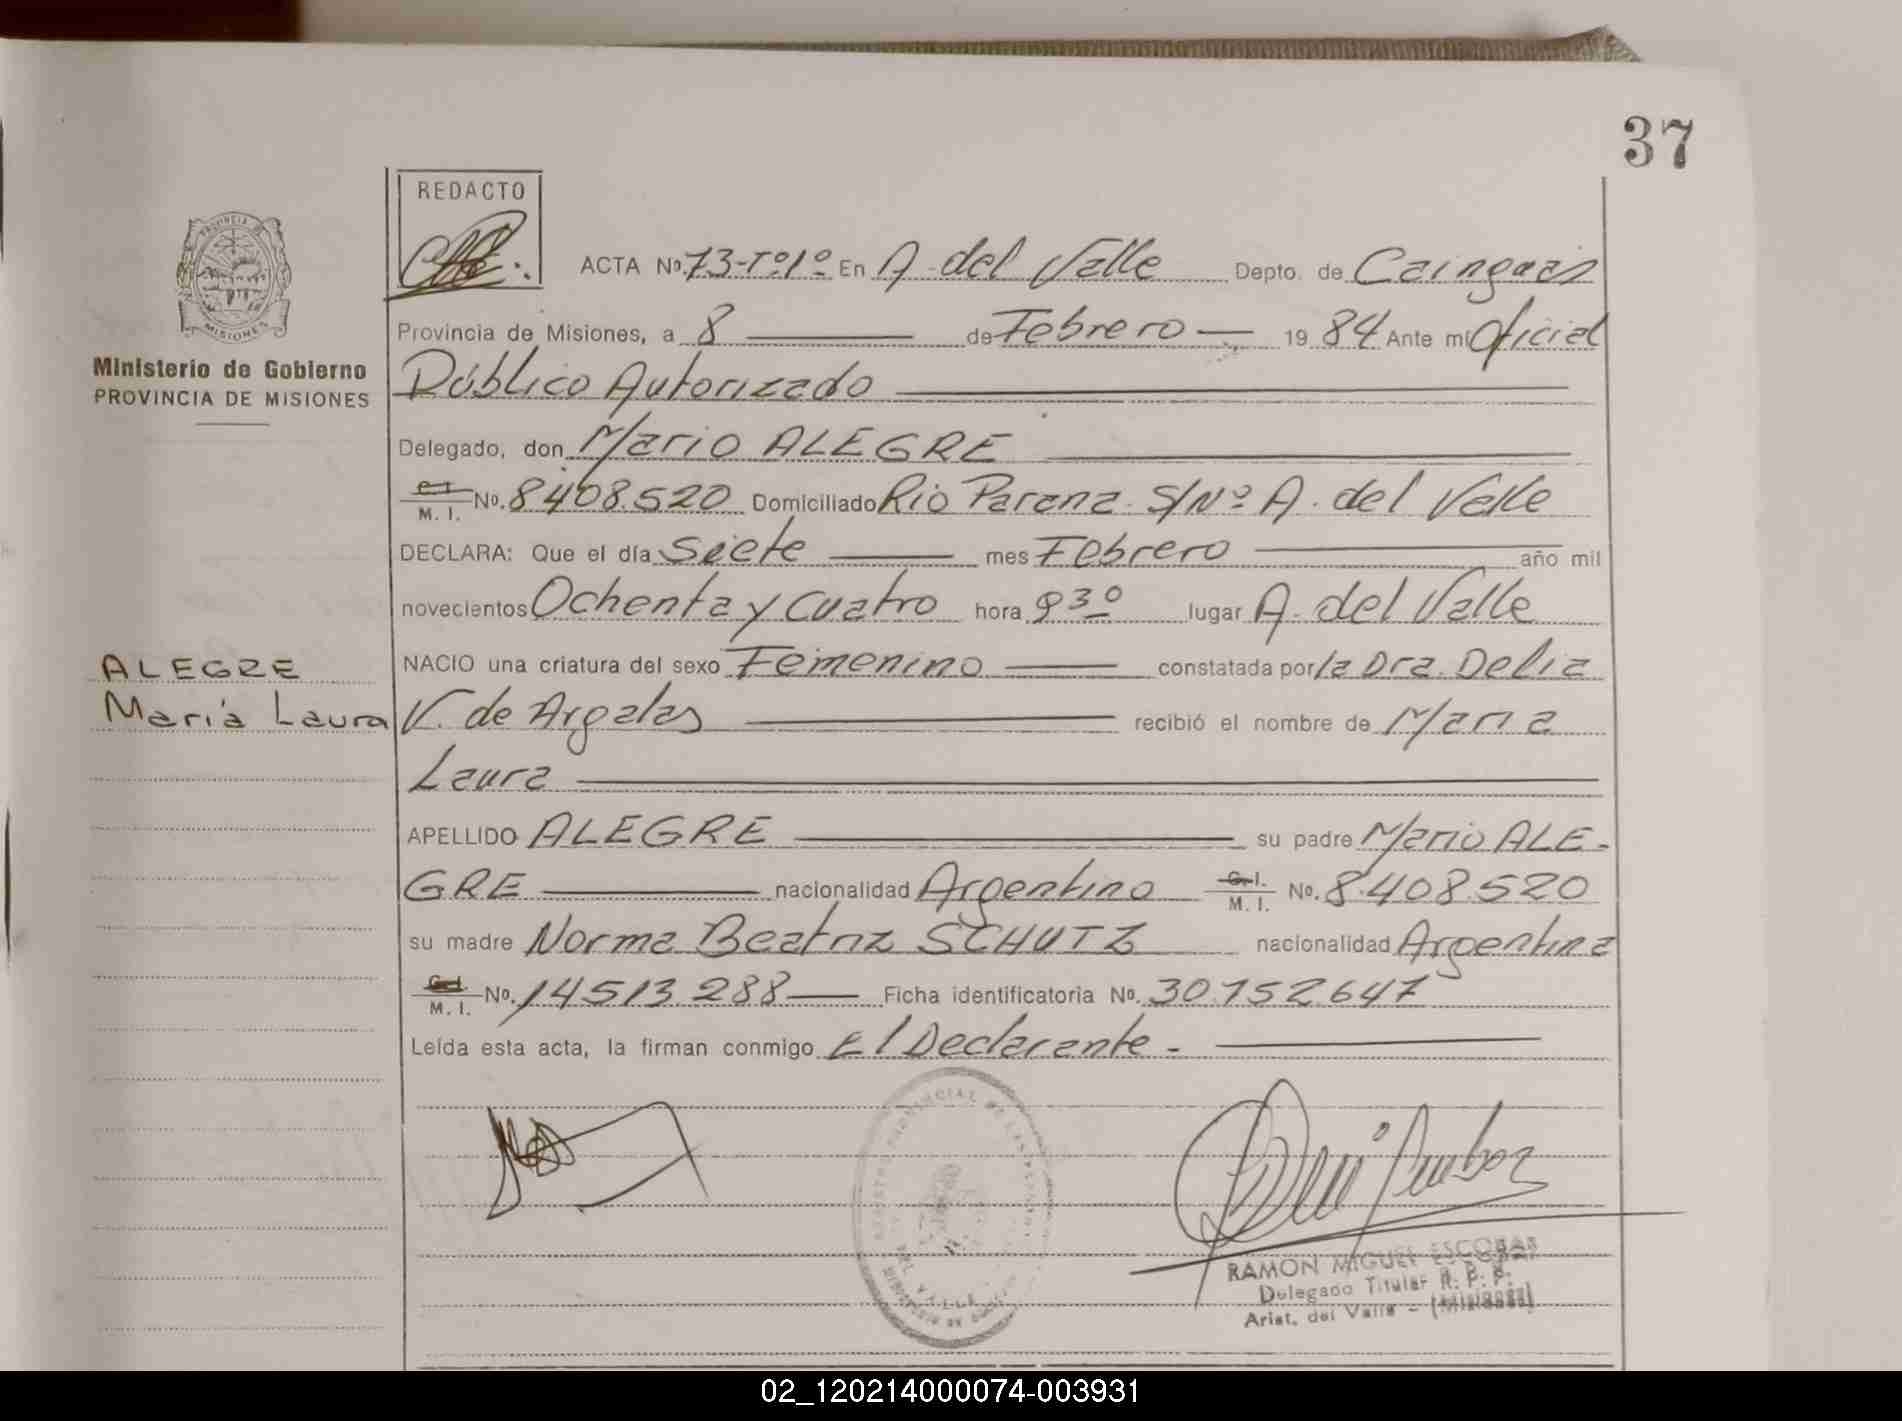 37
REDACTO
ACTA No. 73-Tº1º En A. del Valle Depto. de Cainguás
Provincia de Misiones, a 8 de Febrero 19 84 Ante mi Oficial
Público Autorizado
PROVINCIA DE
MISIONES
Ministerio de Gobierno
PROVINCIA DE MISIONES
Delegado, don Mario ALEGRE
C.I. M. I. No. 8.408.520 Domiciliado Rio Parana S/Nº A. del Valle
DECLARA: Que el día Siete mes Febrero año mil
novecientos Ochenta y Cuatro hora 9 30 lugar A. del Valle
NACIO una criatura del sexo Femenino constatada por la Dra. Delia
V. de Argalas recibió el nombre de Maria
Laura
ALEGRE
María Laura
APELLIDO ALEGRE su padre Mario ALE-
GRE nacionalidad Argentino C.I. M. I. No. 8.408.520
su madre Norma Beatriz SCHUTZ nacionalidad Argentina
C.I. M. I. No. 14513.288 Ficha identificatoria No. 30.752647
Leída esta acta, la firman conmigo El Declarante.-
RAMON MIGUEL ESCOBAR
Delegado Titular R. P. P.
Arist. del Valle - (Misiones)
02_120214000074-003931